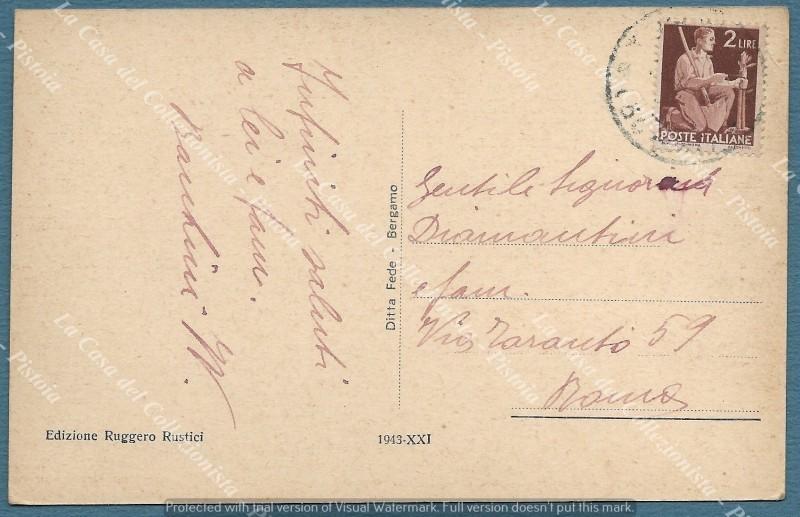 Infiniti saluti
a lei e fam.
2 LIRE
POSTE ITALIANE
Gentile Signora
Diamantini
e fam.
Via Taranto 59
Roma
Ditta Fede - Bergamo
Edizione Ruggero Rustici
1943-XXI
La Casa del Collezionista - Pistoia
Protected with trial version of Visual Watermark. Full version doesn't put this mark.